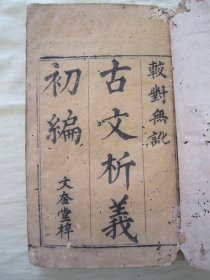 較對無訛
古文析義
初編
文奎堂梓